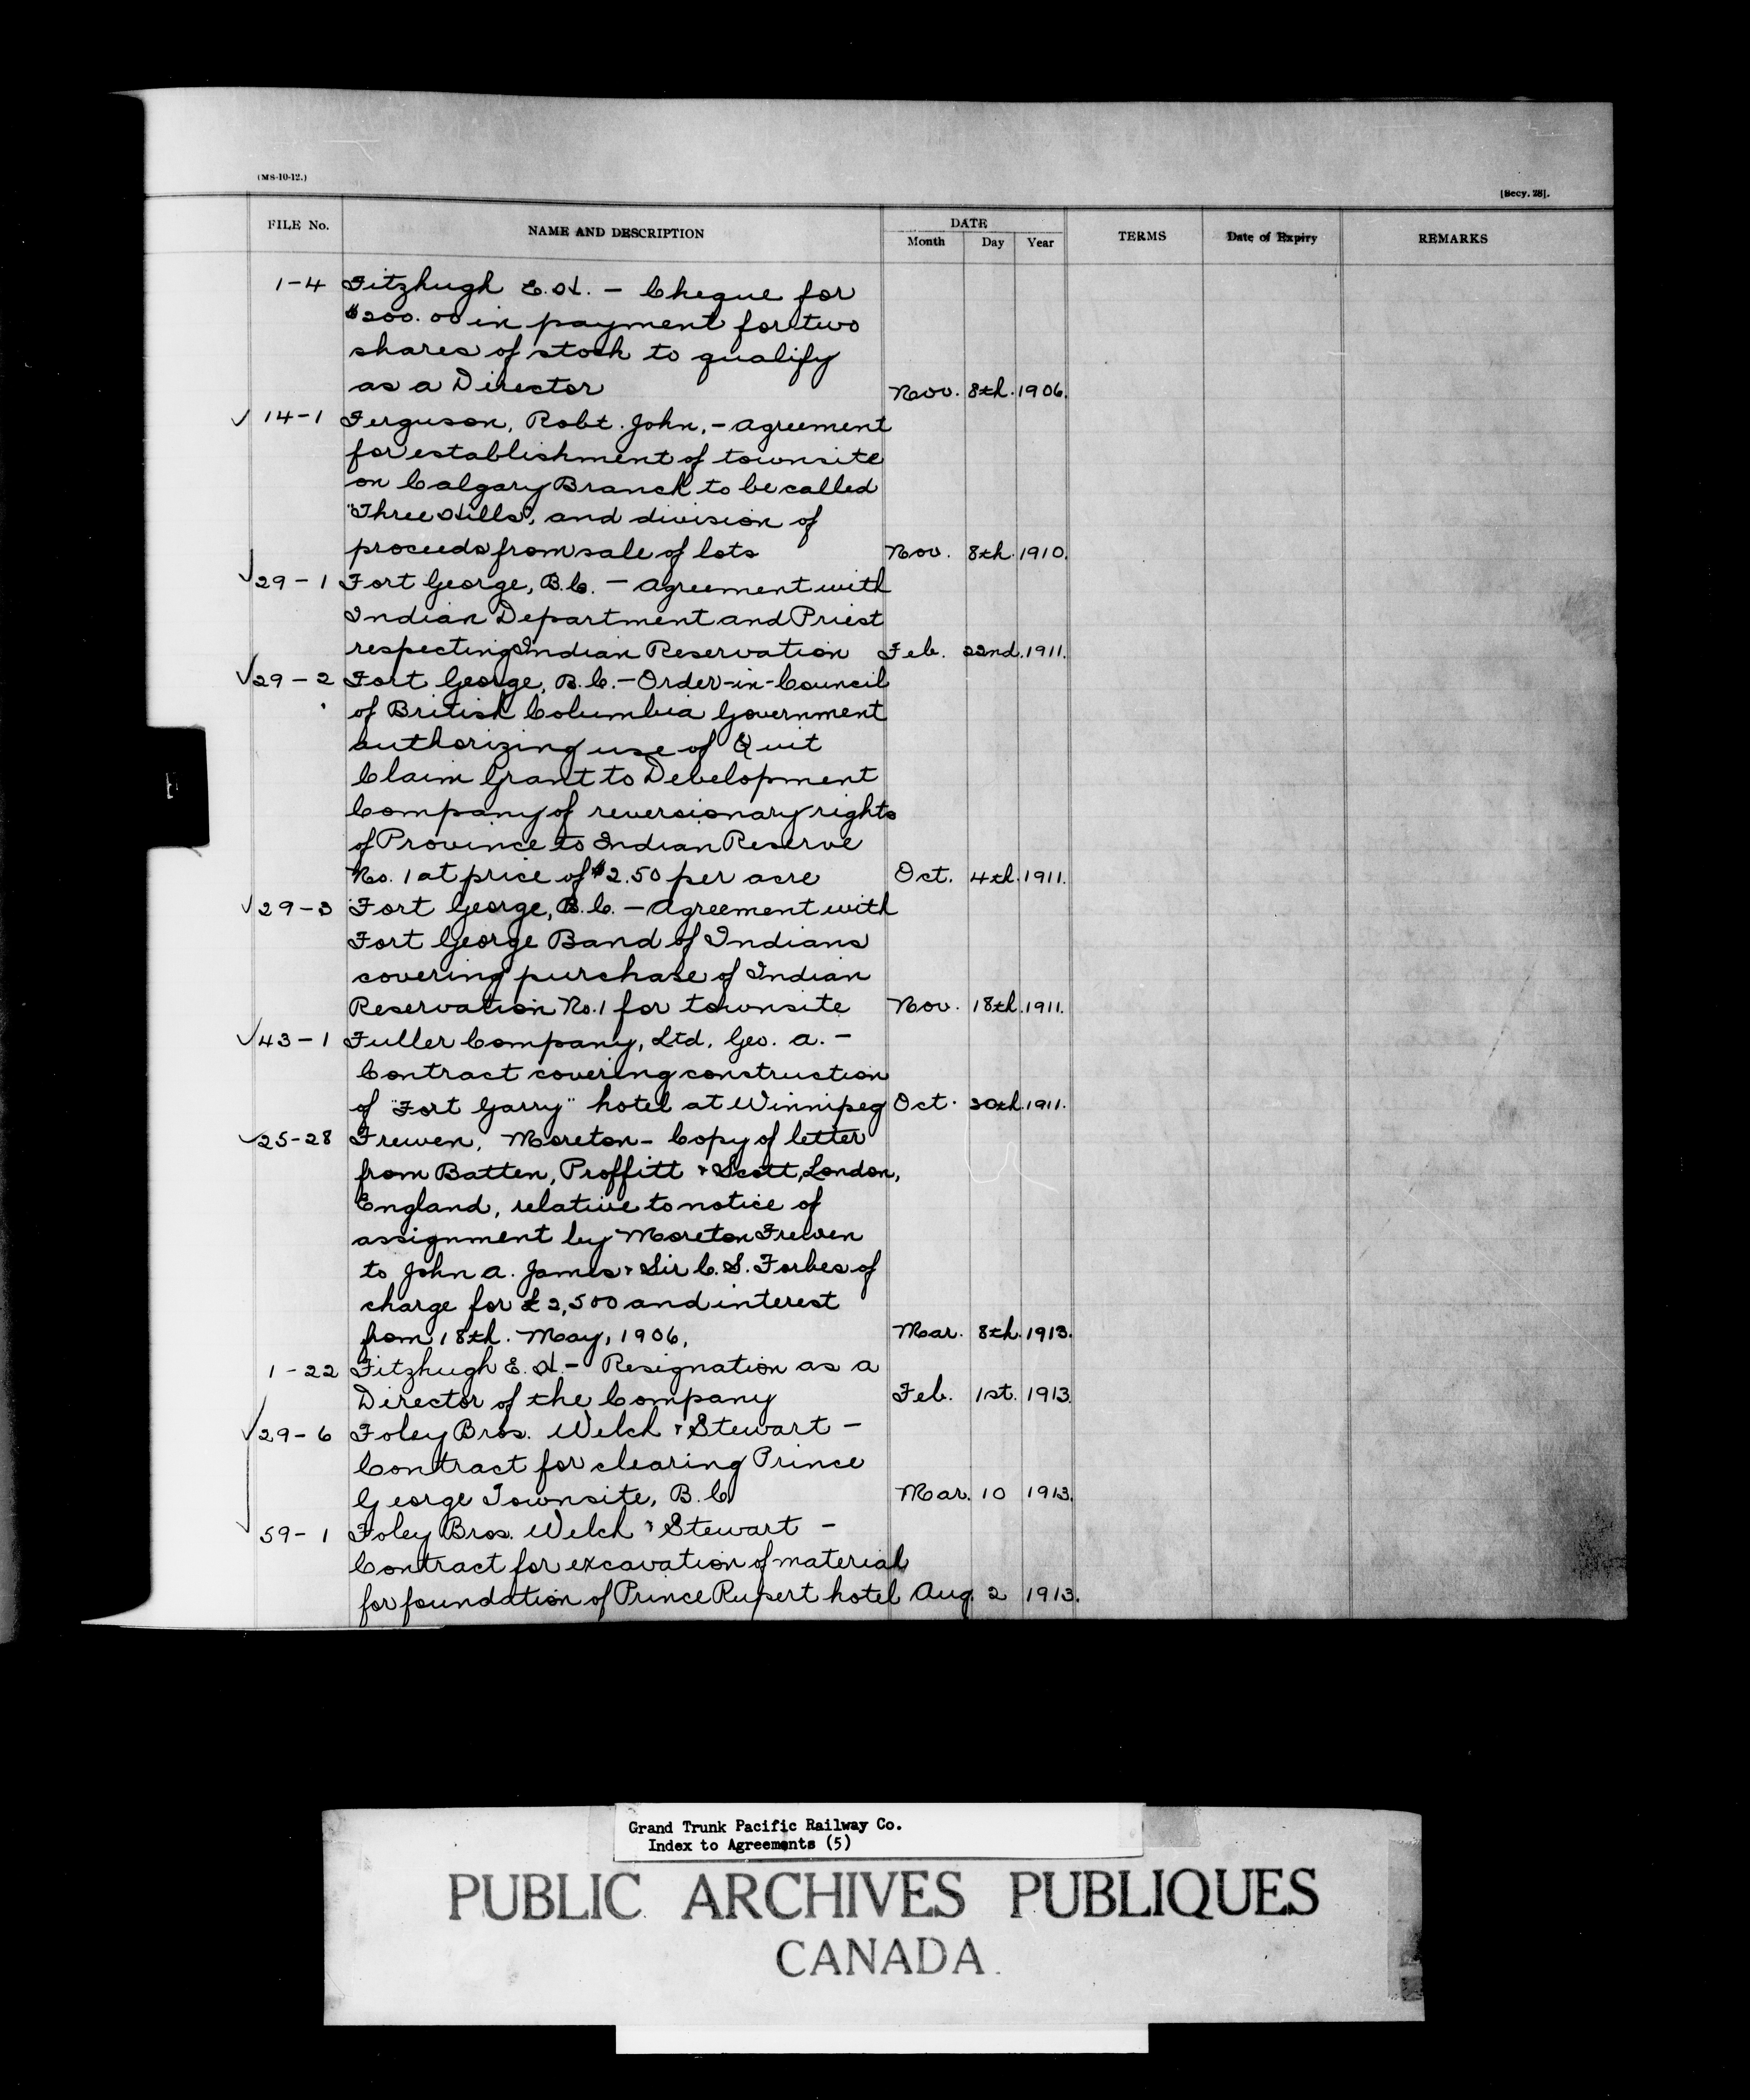 (MS-10-12.)
[Secy. 28].
FILE No. NAME AND DESCRIPTION DATE TERMS Date of Expiry REMARKS
Month Day Year
1-4 Fitzhugh E.H. - Cheque for
$200.00 in payment for two
shares of stock to qualify
as a Director Nov. 8th. 1906.
✓ 14-1 Ferguson, Robt. John, - Agreement
for establishment of townsite
on Calgary Branch to be called
"Three Hills", and division of
proceeds from sale of lots Nov. 8th. 1910.
✓ 29-1 Fort George, B.C. - Agreement with
Indian Department and Priest
respecting Indian Reservation Feb. 22nd. 1911.
✓ 29-2 Fort George, B.C. - Order-in-Council
of British Columbia Government
authorizing use of Quit
Claim Grant to Development
Company of reversionary rights
of Province to Indian Reserve
No. 1 at price of $2.50 per acre Oct. 4th. 1911.
✓ 29-3 Fort George, B.C. - Agreement with
Fort George Band of Indians
covering purchase of Indian
Reservation No. 1 for townsite Nov. 18th. 1911.
✓ 43-1 Fuller Company, Ltd. Geo. A. -
Contract covering construction
of "Fort Garry" hotel at Winnipeg Oct. 30th. 1911.
✓ 25-28 Frewen, Moreton - Copy of letter
from Batten, Proffitt & Scott, London,
England, relative to notice of
assignment by Moreton Frewen
to John A. James & Sir C.S. Forbes of
charge for £2,500 and interest
from 18th. May, 1906, Mar. 8th. 1913.
1-22 Fitzhugh E.H. - Resignation as a
Director of the Company Feb. 1st. 1913.
✓ 29-6 Foley Bros. Welch & Stewart -
Contract for clearing Prince
George Townsite, B.C. Mar. 10 1913.
59-1 Foley Bros. Welch & Stewart -
Contract for excavation of material
for foundation of Prince Rupert hotel Aug. 2 1913.
Grand Trunk Pacific Railway Co.
Index to Agreements (5)
PUBLIC ARCHIVES PUBLIQUES
CANADA